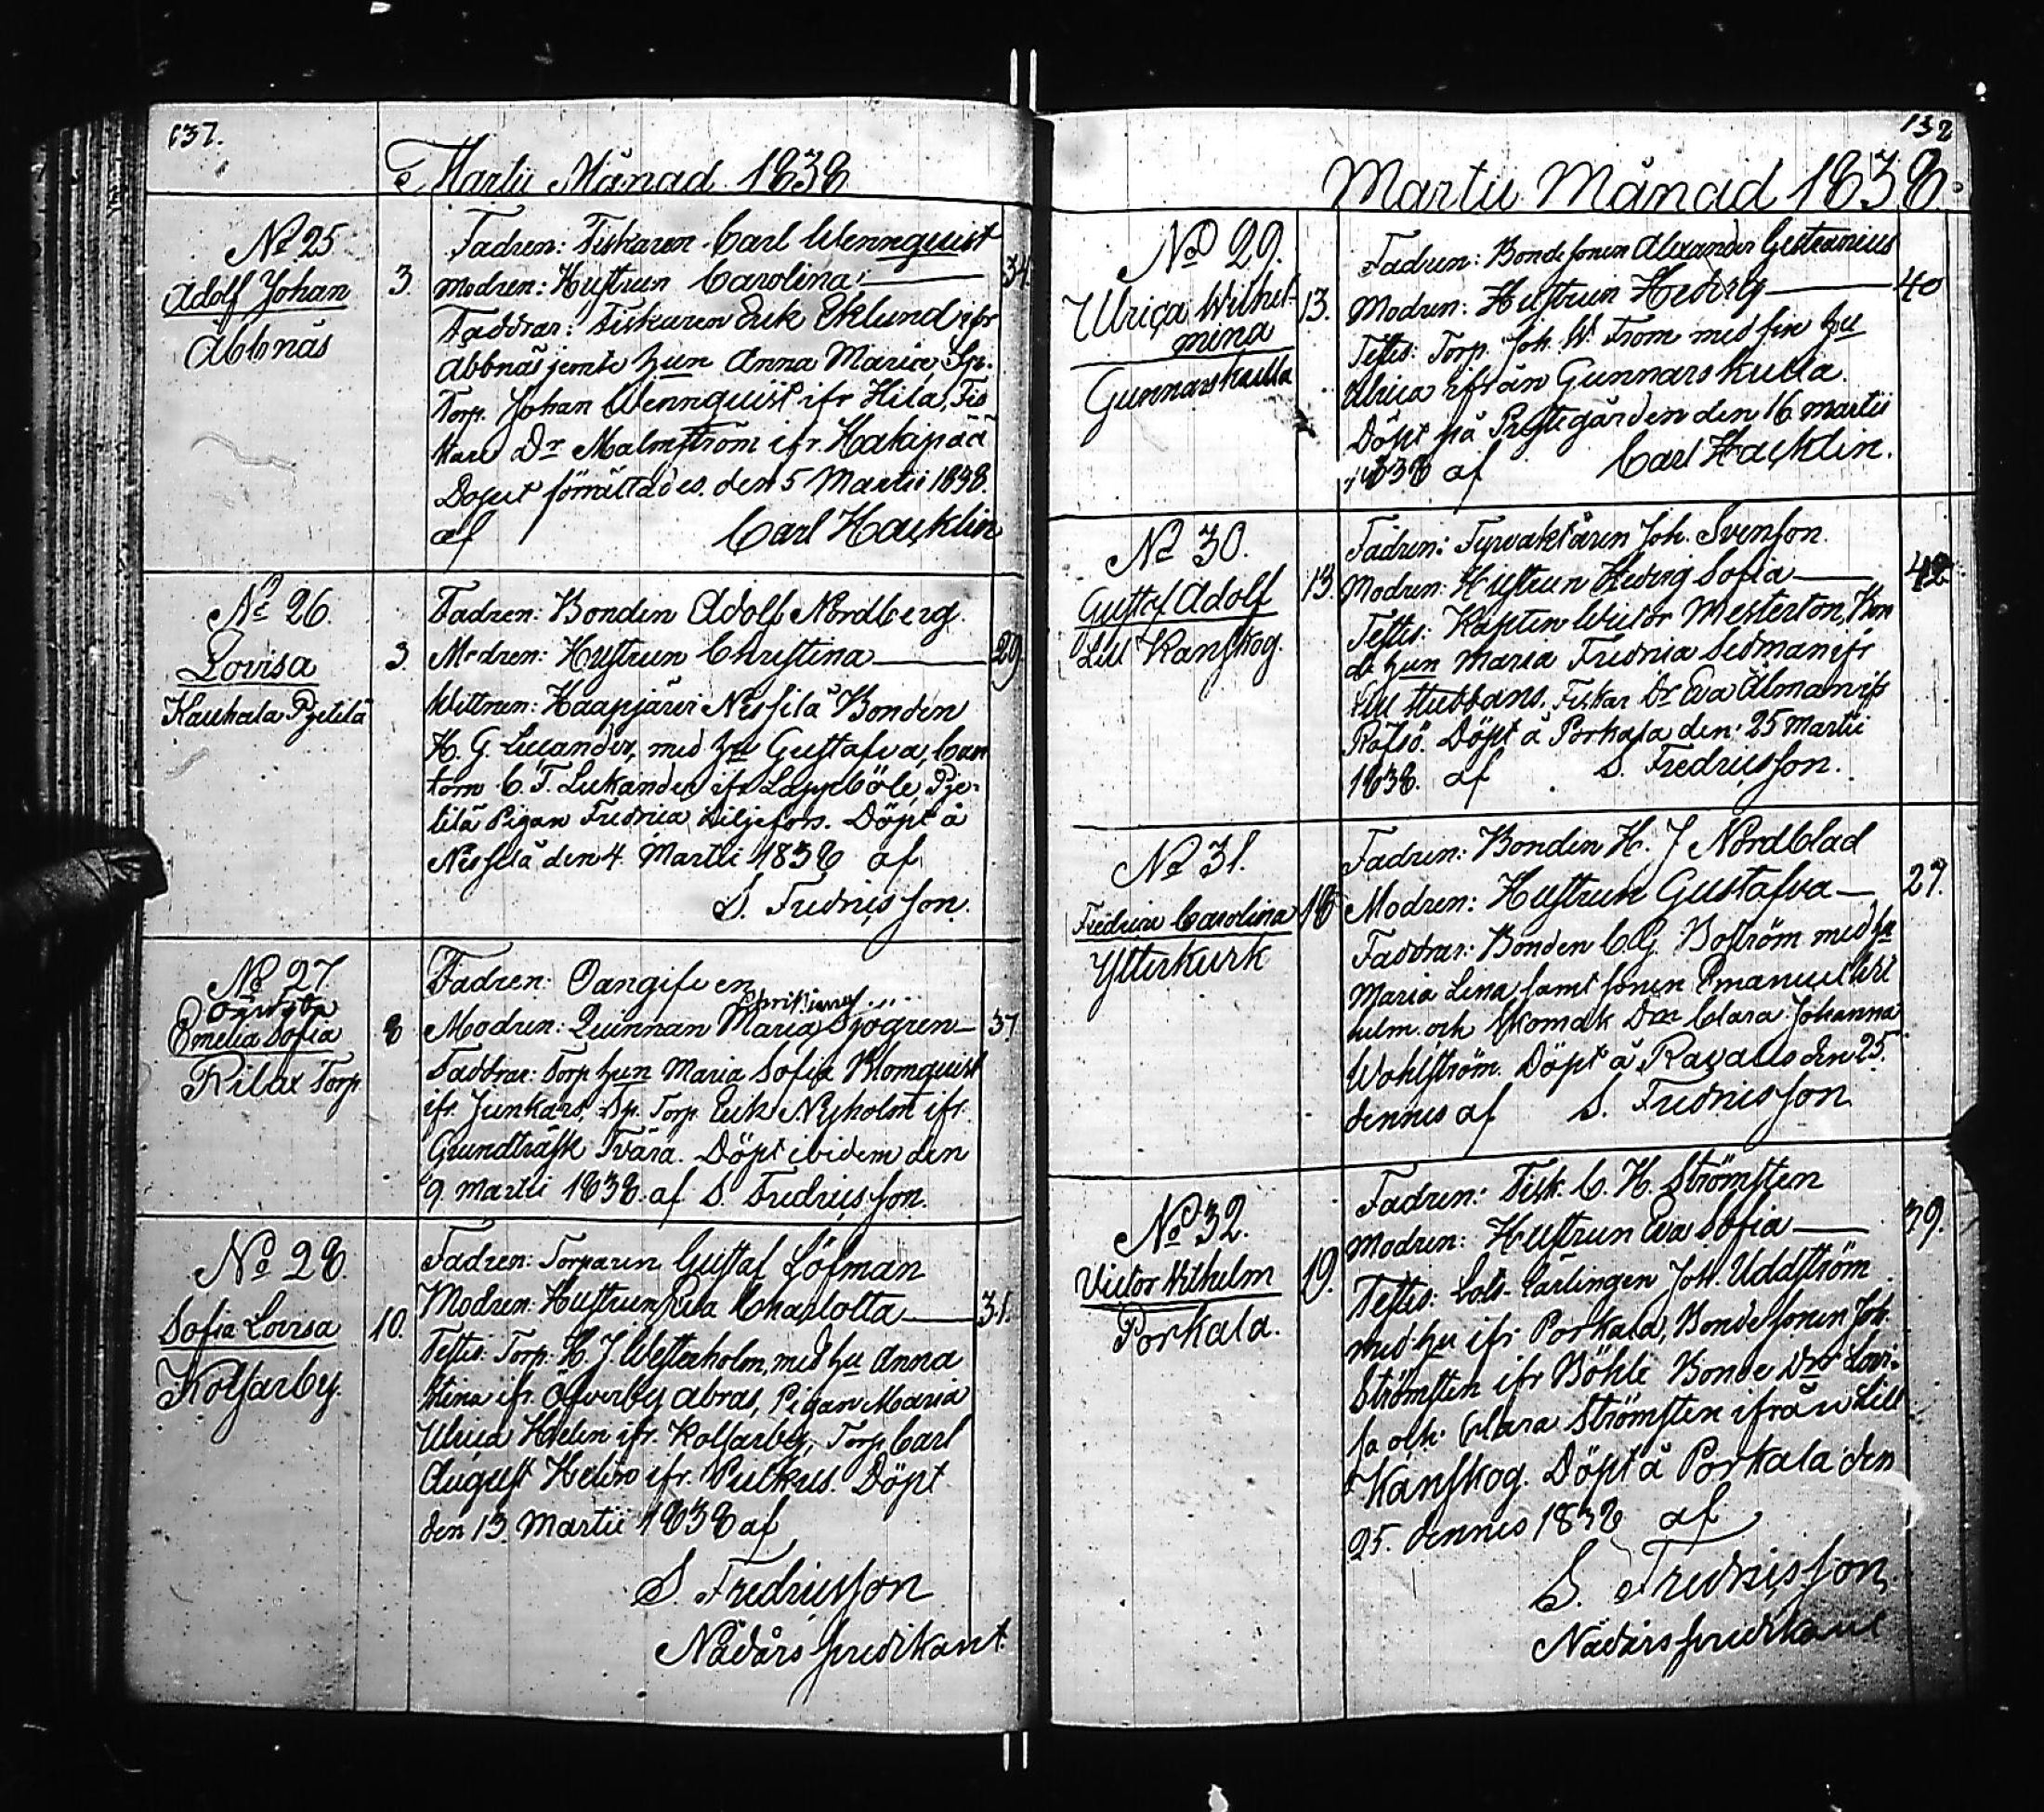 637.
Martii Månad 1838
No 25
Adolf Johan
Abbnäs
3.
Fadren: Fiskaren Carl Wennquist
Modren: Hustrun Carolina
34.
Faddrar: Fiskaren Erik Eklund ifr
Abbnäs jemte hun Anna Maria,
Torp. Johan Wennquist ifr Hila, Fis
kare Dr Malmström ifr.
Doput förrättades den 5 Martii 1838.
af Carl Hacklin
No 26.
Lovisa
Kauhala Pyetilä
3.
Fadren: Bonden Adolf Nordberg
Modren: Hustrun Christina
29.
Wittnen: Haapjärvi Nissilä Bonden
H. G. Lucander, med hu Gustafva, Can
torn C. T. Lukander ifr Lappböle, Pye-
tilä Pigan Fredrica Liljefors. Döpt å
Nissilä den 4. Martii 1838 af
S. Fredricsson.
No 27
oäkta
Emelia Sofia
Kilax Torp
8
Fadren: Oangifven
Modren: Quinnan Maria Sjögren
37.
Faddrar: Torp hun Maria Sofia Blomquist
ifr. Junkars, Dr. Torp. Erik Nyholm ifr.
Grundträsk Tvära. Döpt ibidem den
9 martii 1838. af S. Fredricsson.
No 28.
Sofia Lovisa
Kolsarby.
10.
Fadren: Torparen Gustaf Löfman
Modren: Hustrun Eva Charlotta
31.
Testes: Torp. H. J. Westerholm, med hu Anna
Stina ifr. Öfverby Abras, Pigan Maria
Ulrica Helin ifr. Kolsarby, Torp Carl
August Helin ifr. Pulkus. Döpt
den 13. Martii 1838 af
S. Fredricsson
Nådårs predikant.
132
Martii Månad 1838.
No 29.
Ulrica Wilhel-
mina
Gunnarskulla
13.
Fadren: Bondesonen Alexander Gestranius
Modren: Hustrun Hedvig
40
Testes: Torp. Joh. W. From med sin hu
Ulrica ifrån Gunnarskulla.
Döpt på Prestegården den 16 martii
1838 af Carl Hacklin.
No 30.
Gustaf Adolf
Lill Kanskog.
13.
Fadren: Fyrvaktåren Joh. Svenson.
Modren: Hustrun Hedvig Sofia
42
Testes: Kapten Victor Westerton, Bon
de hun Maria Fredrica Sedman ifr
Stubbans. Fiskar Dr Eva Ålman ifr
Räfsö. Döpt å Porkala den 25 Martii
1838. af S. Fredricsson.
No 31.
Fredrica Carolina
Ytterkurk
16
Fadren: Bonden H. J Nordblad
Modren: Hustrun Gustafva
27.
Faddrar: Bonden C. G. Boström med hu
Maria Lena, samt sonen Emanuel Wil
helm. och Skomak Dr Clara Johanna
Wohlström. Döpt å Ravals den 25.
dennes af S. Fredricsson
No 32.
Victor Wilhelm
Porkala.
19.
Fadren: Fisk. C. H. Strömsten
Modren: Hustrun Eva Sofia
39.
Testes: Lots-Lärlingen Joh. Uddström
med hu ifr Porkala, Bondesonen Joh.
Strömsten ifr Böhle Bonde Drr Lovi-
sa och Clara Strömsten ifrån Lill
Kanskog. Döpt å Porkala den
25. dennes 1838 af
S. Fredricsson,
Nådårs predikant